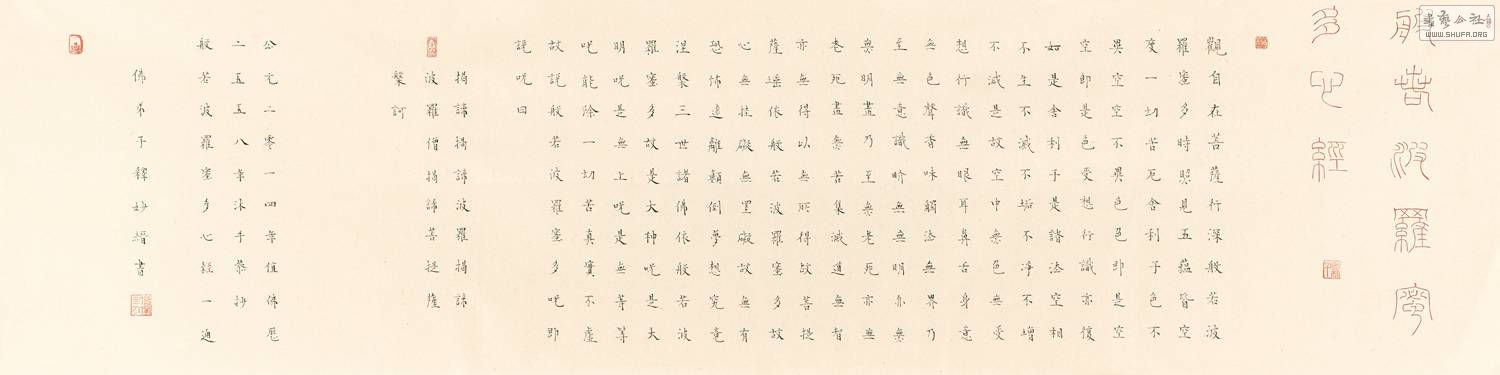 般若波羅蜜
多心經
觀自在菩薩行深般若波
羅蜜多時照見五蘊皆空
度一切苦厄舍利子色不
異空空不異色色即是空
空即是色受想行識亦復
如是舍利子是諸法空相
不生不滅不垢不淨不增
不減是故空中無色無受
想行識無眼耳鼻舌身意
無色聲香味觸法無界乃
至無意識界無無明亦無
無明盡乃至無老死亦無
老死盡無苦集滅道無智
亦無得以無所得故菩提
薩埵依般若波羅蜜多故
心無挂礙無罣礙故無有
恐怖遠離顛倒夢想究竟
涅槃三世諸佛依般若波
羅蜜多故是大神咒是大
明咒是無上咒是無等等
咒能除一切苦真實不虛
故說般若波羅蜜多咒即
說咒曰
揭諦揭諦波羅揭諦
波羅僧揭諦菩提薩
槃訶
公元二零一四年值佛歷
二五五八年沐手恭抄
般若波羅蜜多心經一遍
佛弟子釋妙縉書
書藝公社
WWW.SHUFA.ORG